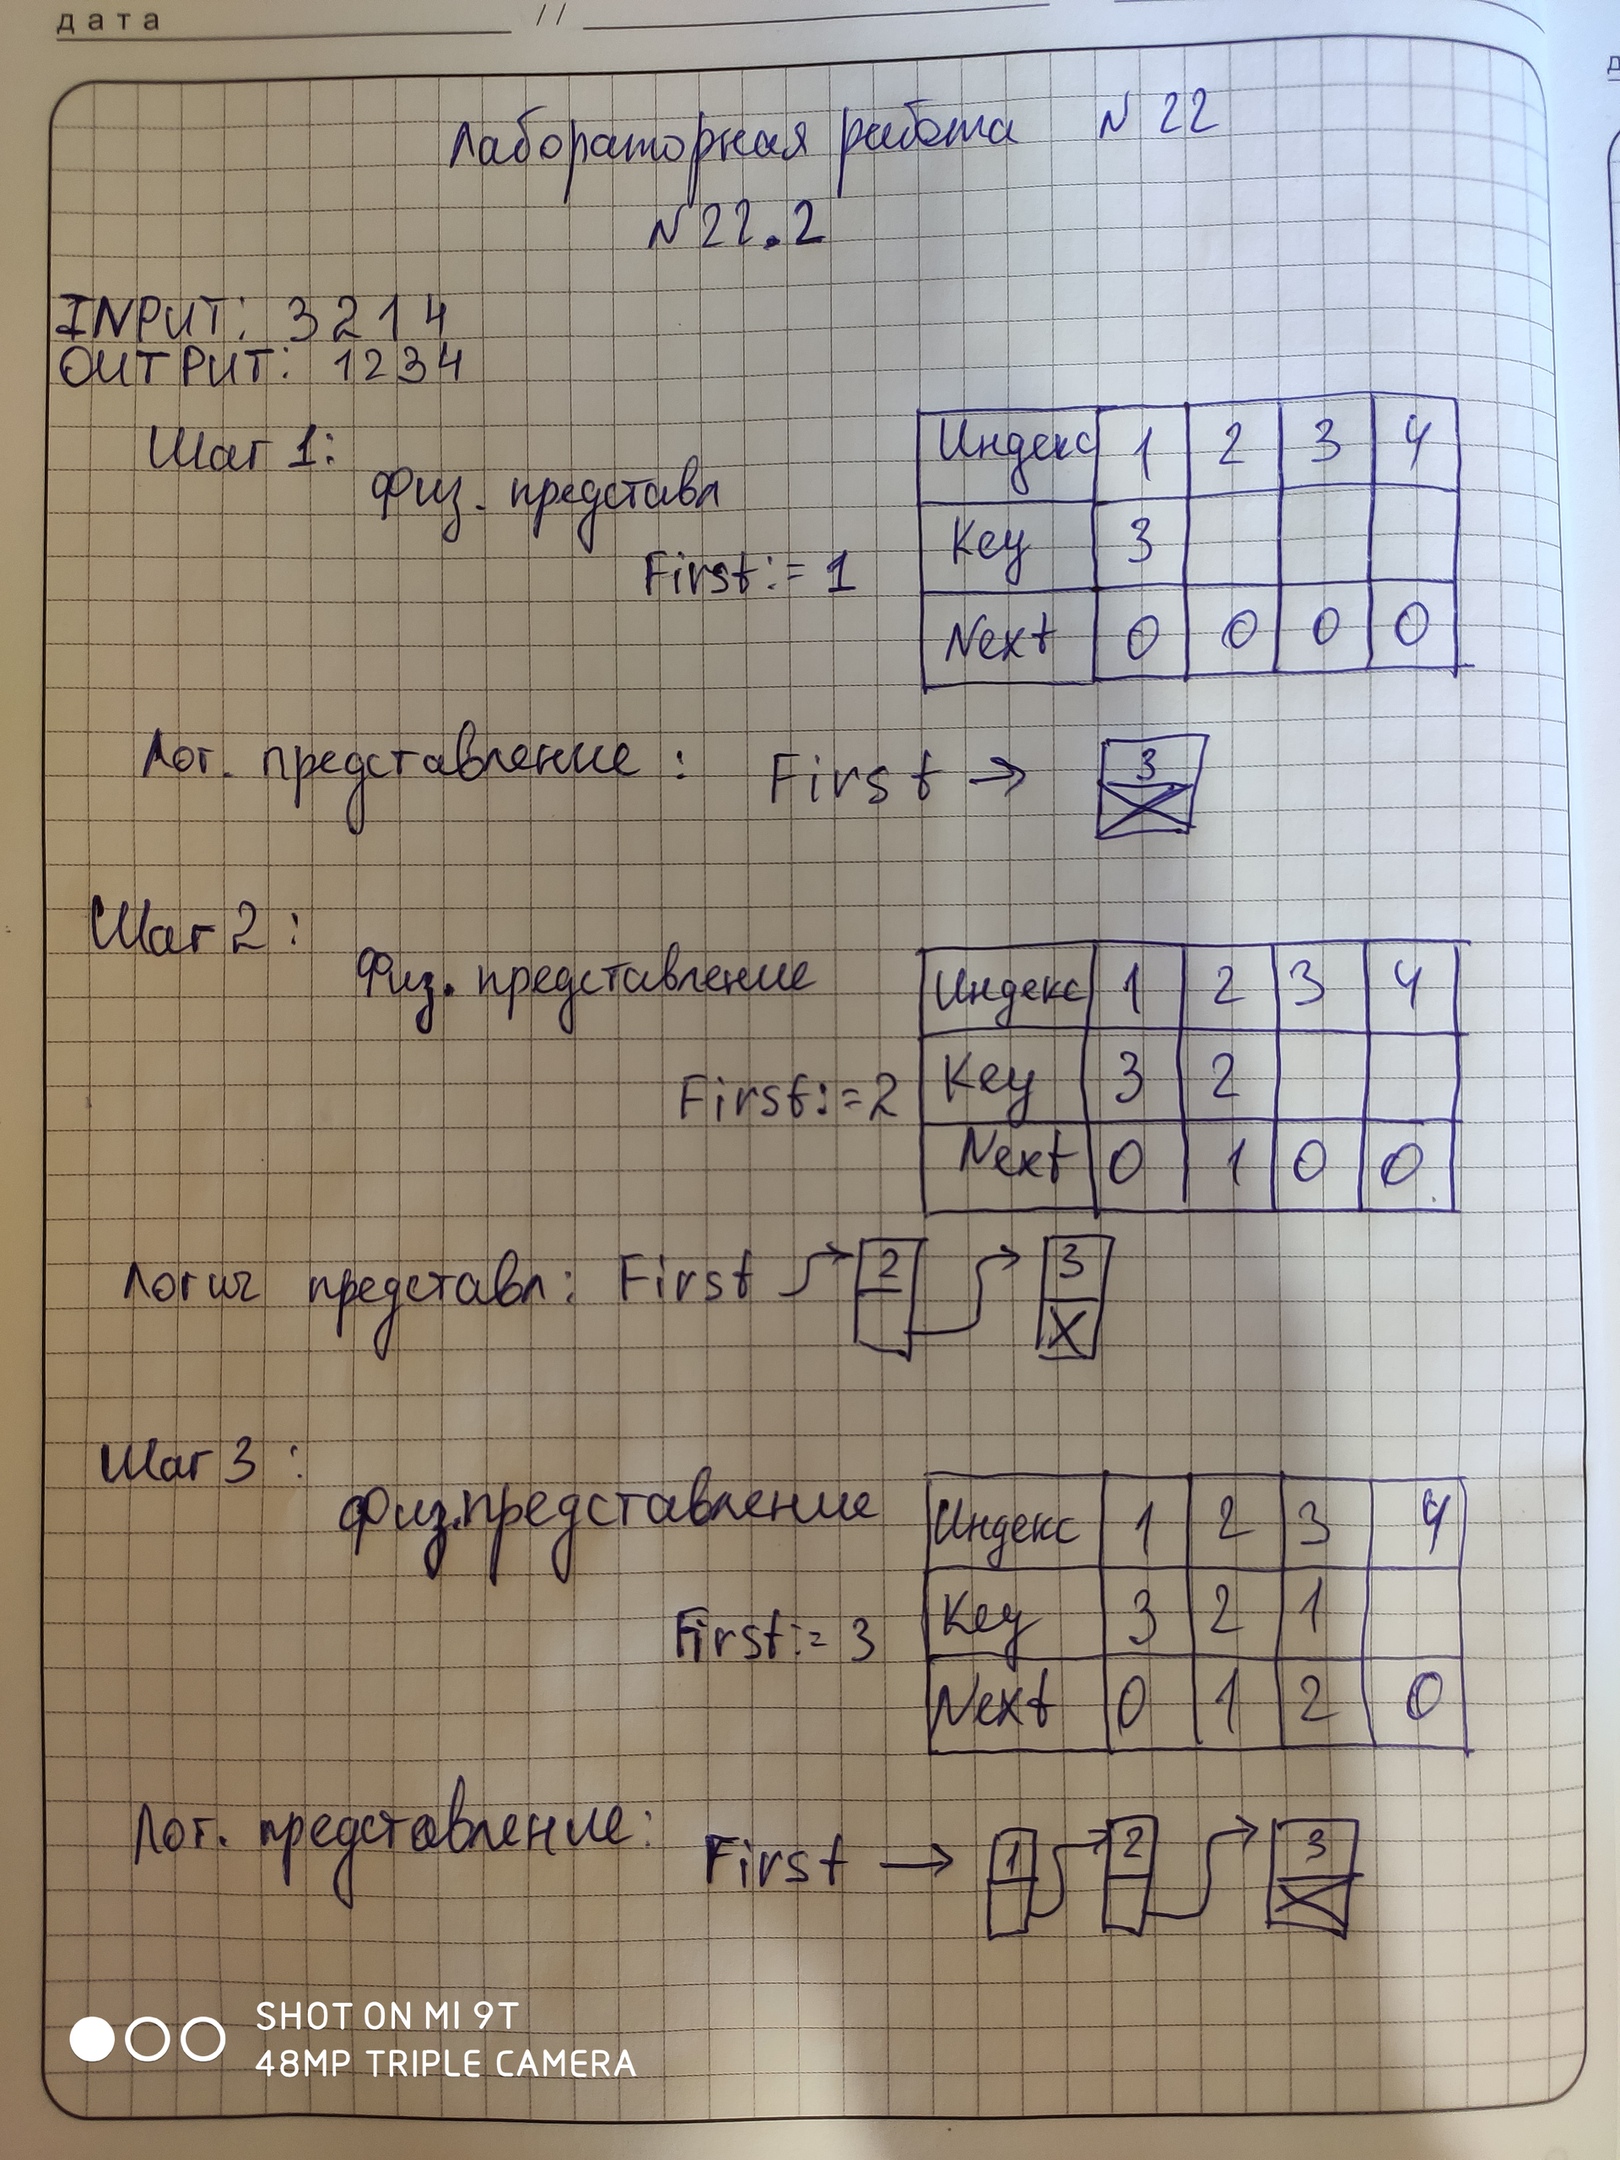 дата / /
Лабораторная работа N 22
N 22.2
INPUT: 3 2 1 4
OUTPUT: 1 2 3 4
Шаг 1:
Физ. представл
First := 1
Индекс 1 2 3 4
Key 3
Next 0 0 0 0
Лог. представление : First → 3
Шаг 2 :
Физ. представление
First := 2
Индекс 1 2 3 4
Key 3 2
Next 0 1 0 0
Логич представл : First 2 3
Шаг 3 :
Физ. представление
First := 3
Индекс 1 2 3 4
Key 3 2 1
Next 0 1 2 0
Лог. представление : First → 1 2 3
SHOT ON MI 9T
48MP TRIPLE CAMERA